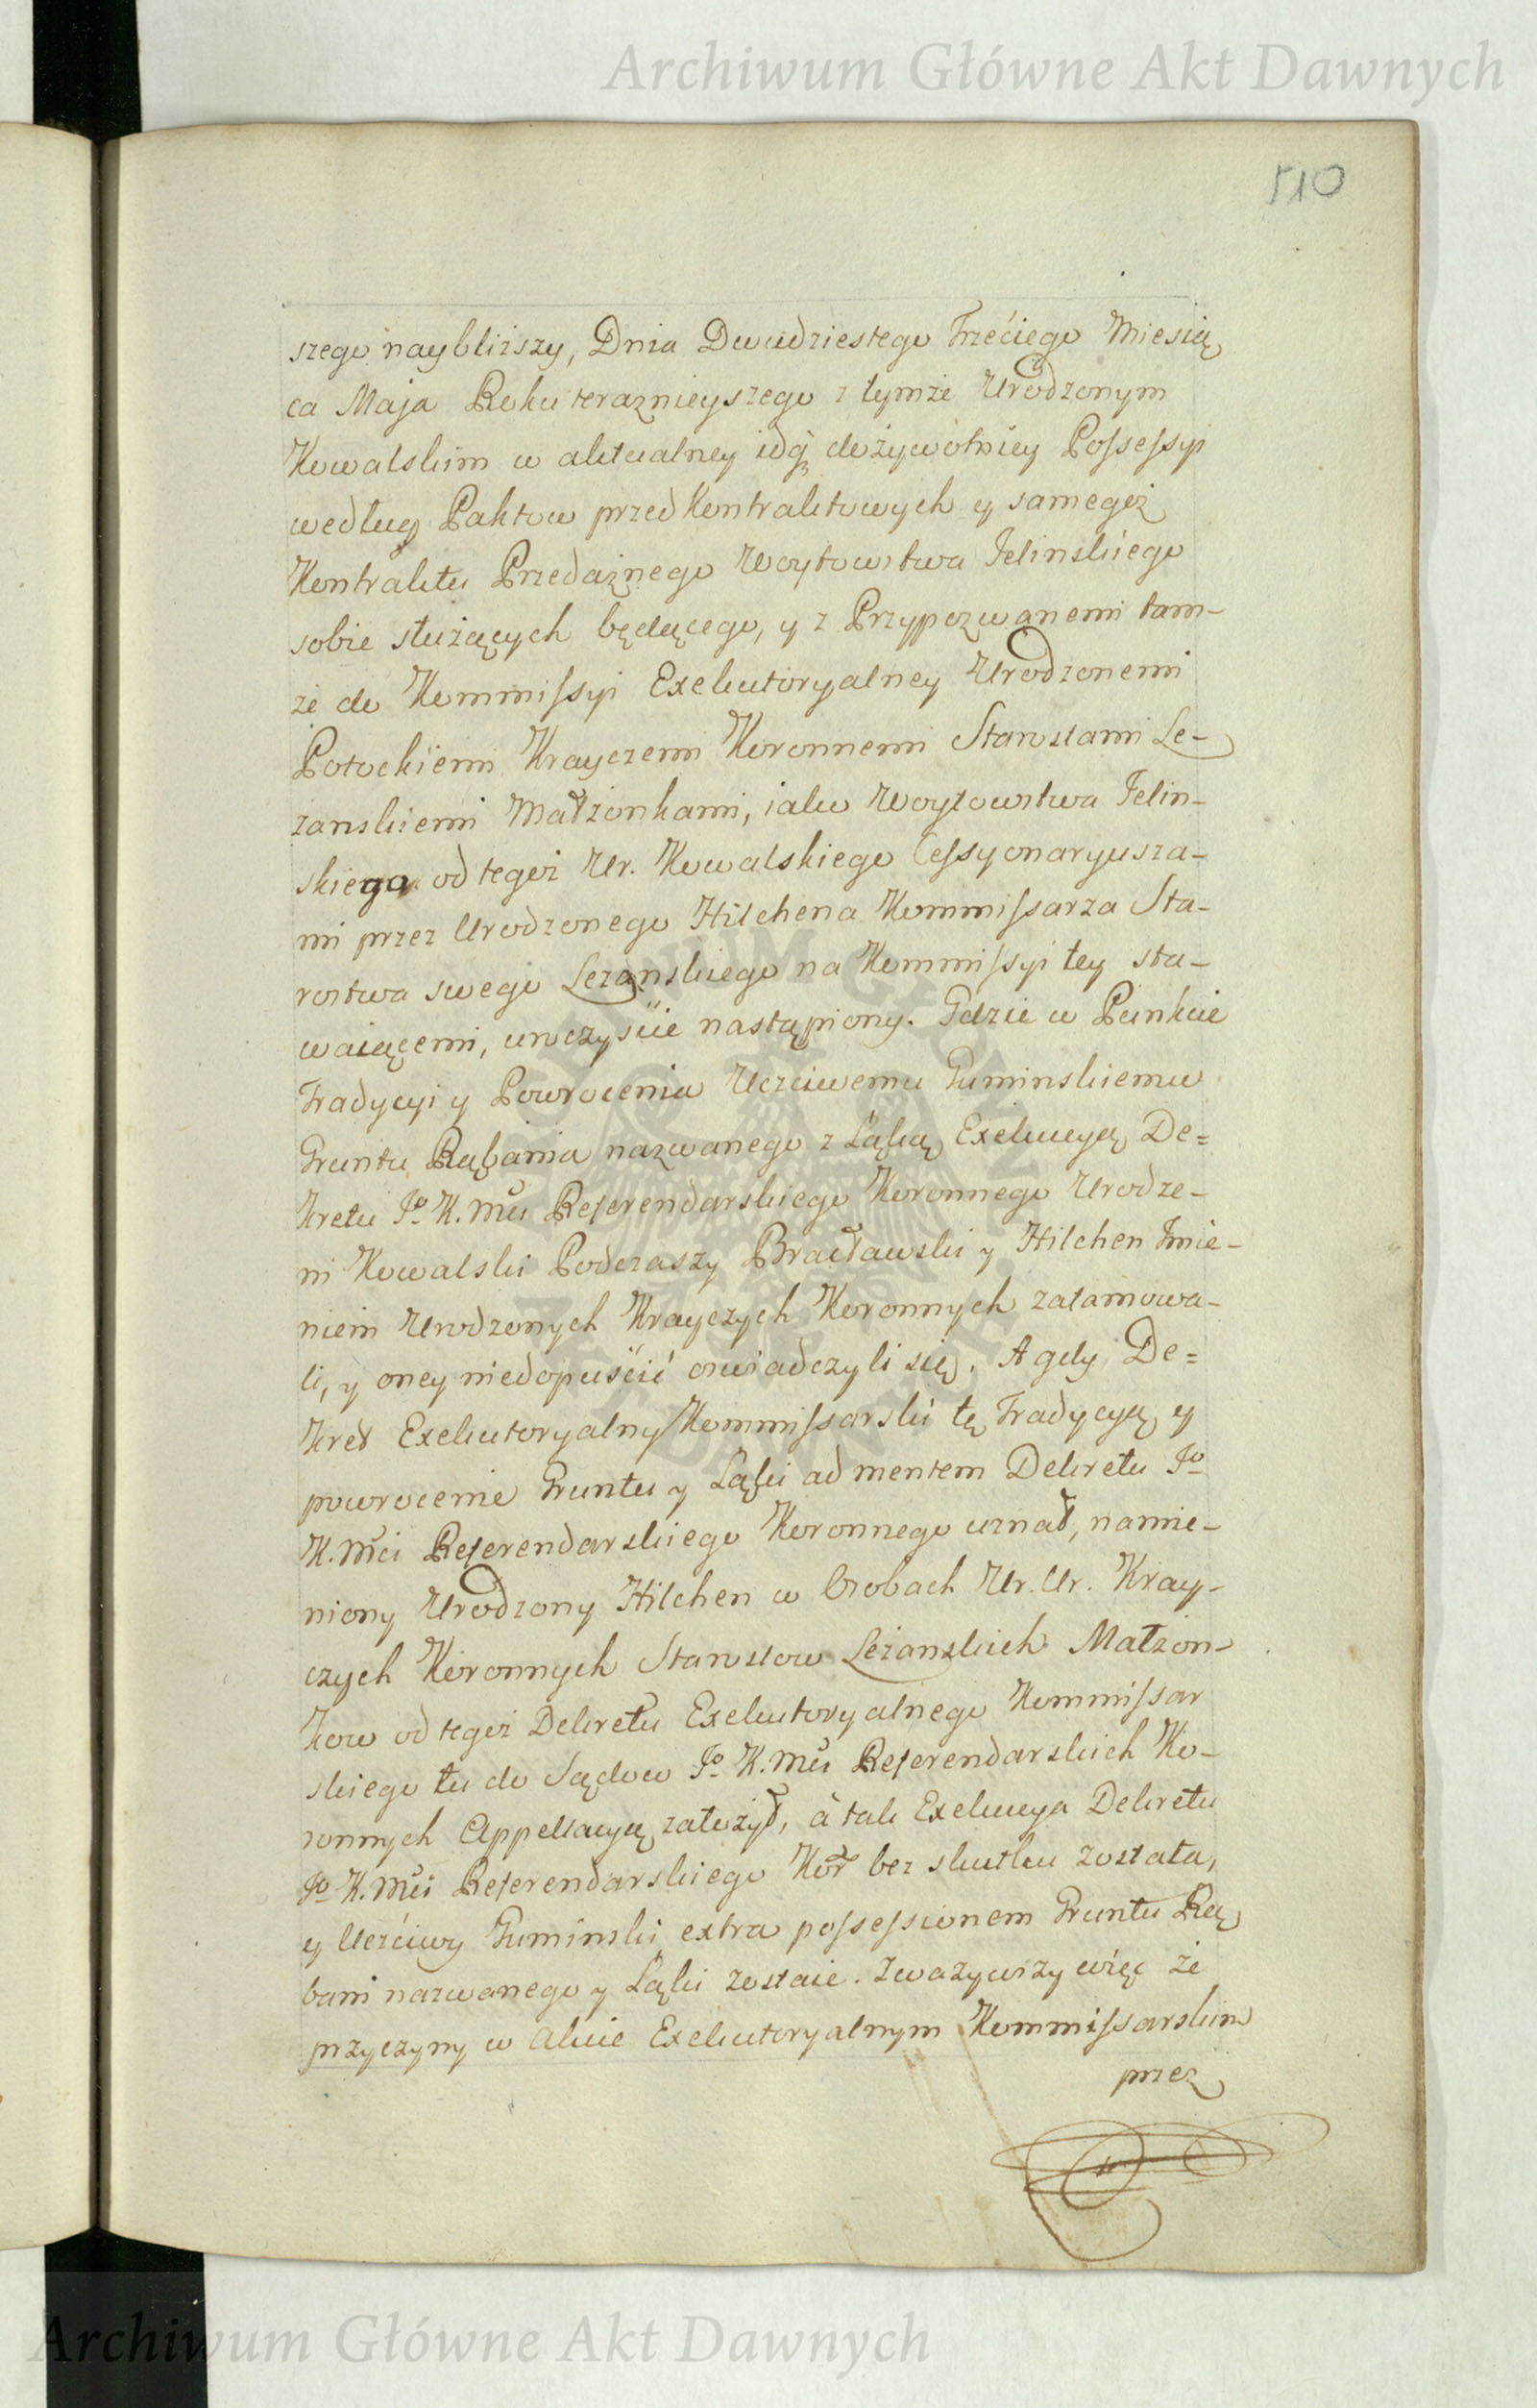 Archiwum Główne Akt Dawnych
510
szego naybliższy, Dnia Dwudziestego Trzeciego Miesią
ca Maja Roku teraznieyszego z tymże Urodzonym
Kowalskim w aktualney idq̃ dożywotniey Possessyi
według Paktow przedkontraktowych y samegoż
Kontraktu Przedażnego Woytowstwa Jelinskiego
sobie służących będącego, y z Przypozwanemi tam-
że do Kommissyi Exekutoryalney Urodzonemi
Potockiemi Krayczemi Koronnemi Starostami Le-
żanskiemi Małżonkami, iako Woytowstwa Jelin-
skiego od tegoż Ur. Kowalskiego Cessyonaryusza-
mi przez Urodzonego Hilchena Kommissarza Sta-
rostwa swego Leżanskiego na Kommissyi tey sta-
waiącemi, uroczyście nastąpiony. Gdzie w Punkcie
Tradycyi y Powrocenia Uczciwemu Guminskiemu
Gruntu Rąbania nazwanego z Łąką Exekucyą De=
kretu Jo K. Mci Referendarskiego Koronnego Urodze-
ni Kowalski Podczaszy Bracławski y Hilchen Jmie-
niem Urodzonych Krayczych Koronnych zatamowa-
li, y oney niedopuścić oswiadczyli się. A gdy De=
kret Exekutoryalny Kommissarski tę Tradycyą y
powrocenie Gruntu y Łąki ad mentem Dekretu Jo
K. Mci Referendarskiego Koronnego uznał, namie-
niony Urodzony Hilchen w Osobach Ur. Ur. Kray-
czych Koronnych Starostow Leżanskich Małżon-
kow od tegoż Dekretu Exekutoryalnego Kommissar
skiego tu do Sądow Jo K. Mci Referendarskich Ko-
ronnych Appellacyą założył, à tak Exekucya Dekretu
Jo K. Mci Referendarskiego Kor̃ bez skutku została,
y Uczciwy Guminski extra possessionem Gruntu Rą
bani nazwanego y Łąki zostaie. Zważywszy więc że
przyczyny w Akcie Exekutoryalnym Kommissarskim
przez
Archiwum Główne Akt Dawnych